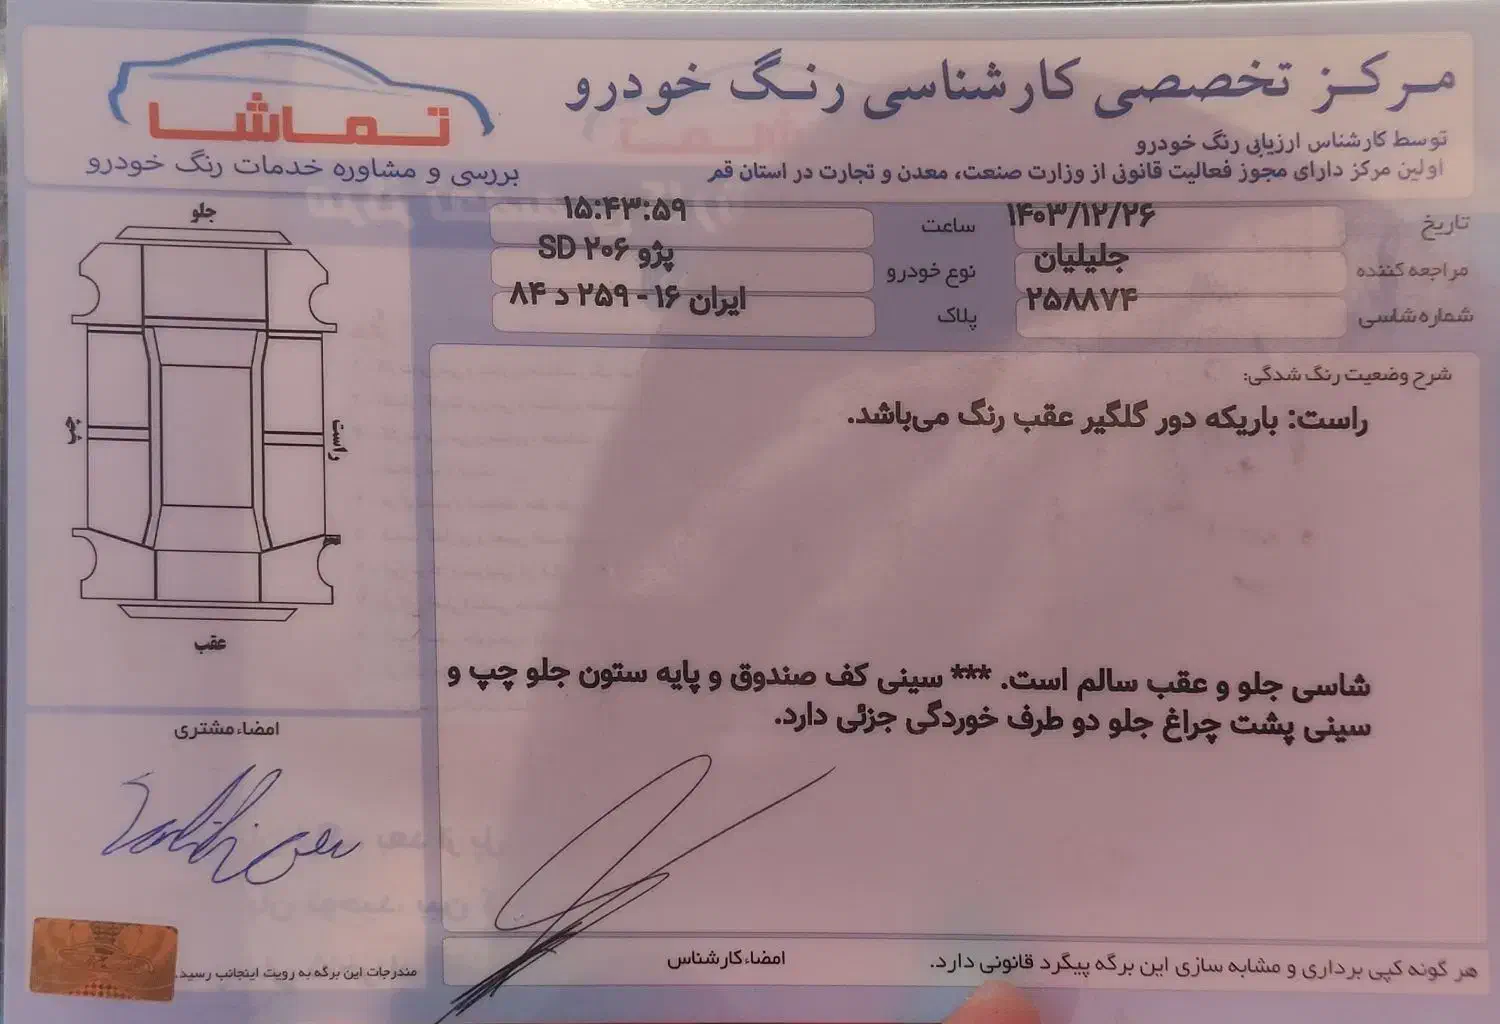 مرکز تخصصی کارشناسی رنگ خودرو
توسط کارشناس ارزیابی رنگ خودرو
اولین مرکز دارای مجوز فعالیت قانونی از وزارت صنعت، معدن و تجارت در استان قم
تماشا
بررسی و مشاوره خدمات رنگ خودرو
تاریخ ۱۴۰۳/۱۲/۲۶ ساعت ۱۵:۴۳:۵۹
مراجعه کننده جلیلیان نوع خودرو پژو ۲۰۶ SD
شماره شاسی ۲۵۸۸۷۴ پلاک ایران ۱۶ - ۲۵۹ د ۸۴
شرح وضعیت رنگ شدگی:
راست: باریکه دور گلگیر عقب رنگ می‌باشد.
شاسی جلو و عقب سالم است. *** سینی کف صندوق و پایه ستون جلو چپ و
سینی پشت چراغ جلو دو طرف خوردگی جزئی دارد.
جلو
راست
چپ
عقب
امضاء مشتری
مندرجات این برگه به رویت اینجانب رسید.
امضاء کارشناس
هر گونه کپی برداری و مشابه سازی این برگه پیگرد قانونی دارد.